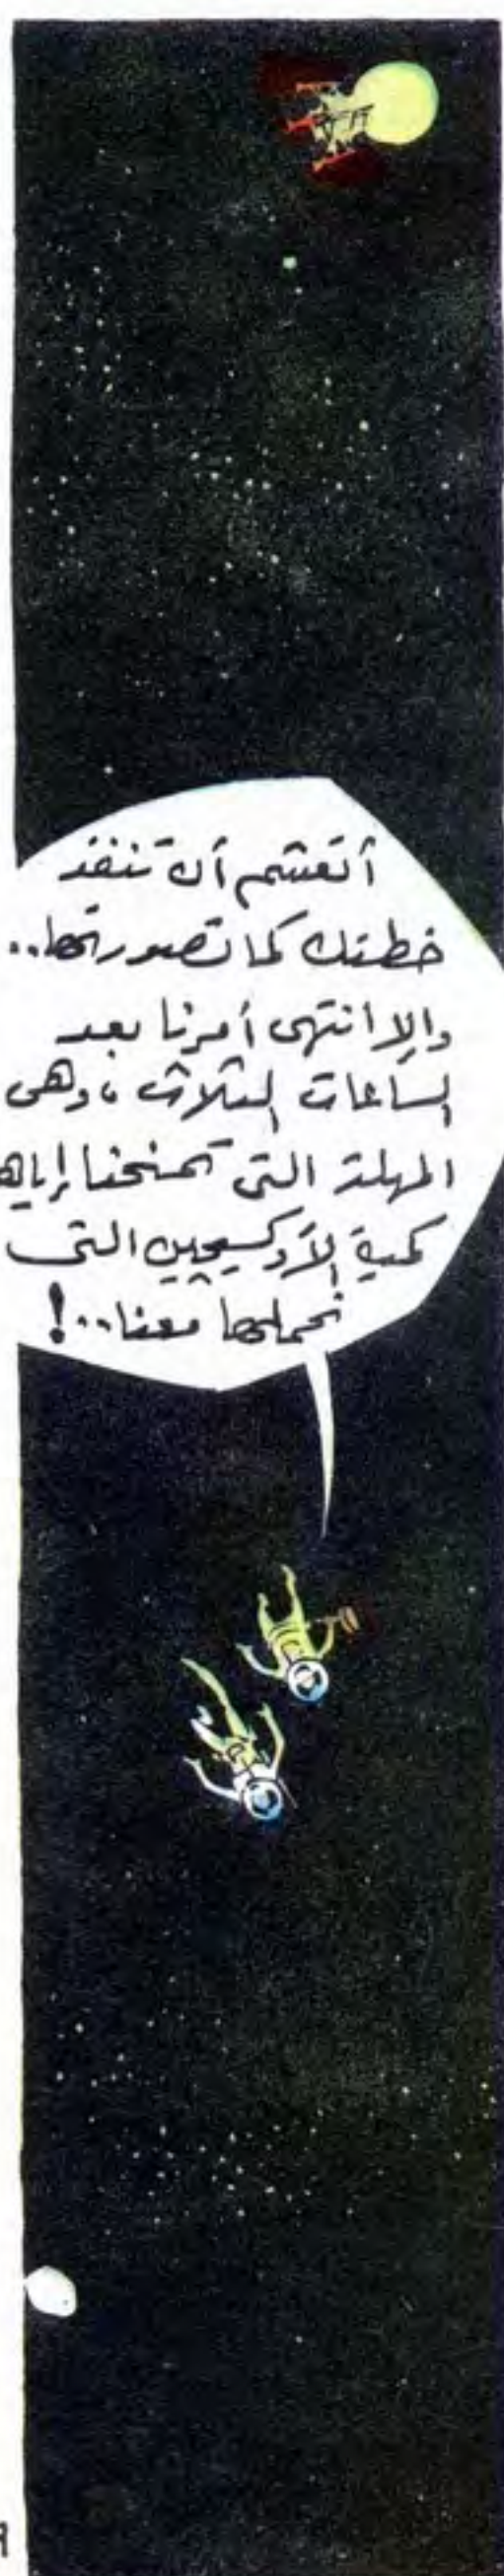 أتعشم أن تنفذ
خطتك كما تصورتها..
وإلا انتهى أمرنا بعد
الساعات الثلاث، وهى
المهلة التى تمنحنا إياها
كمية الأوكسيچين التى
نحملها معنا..!